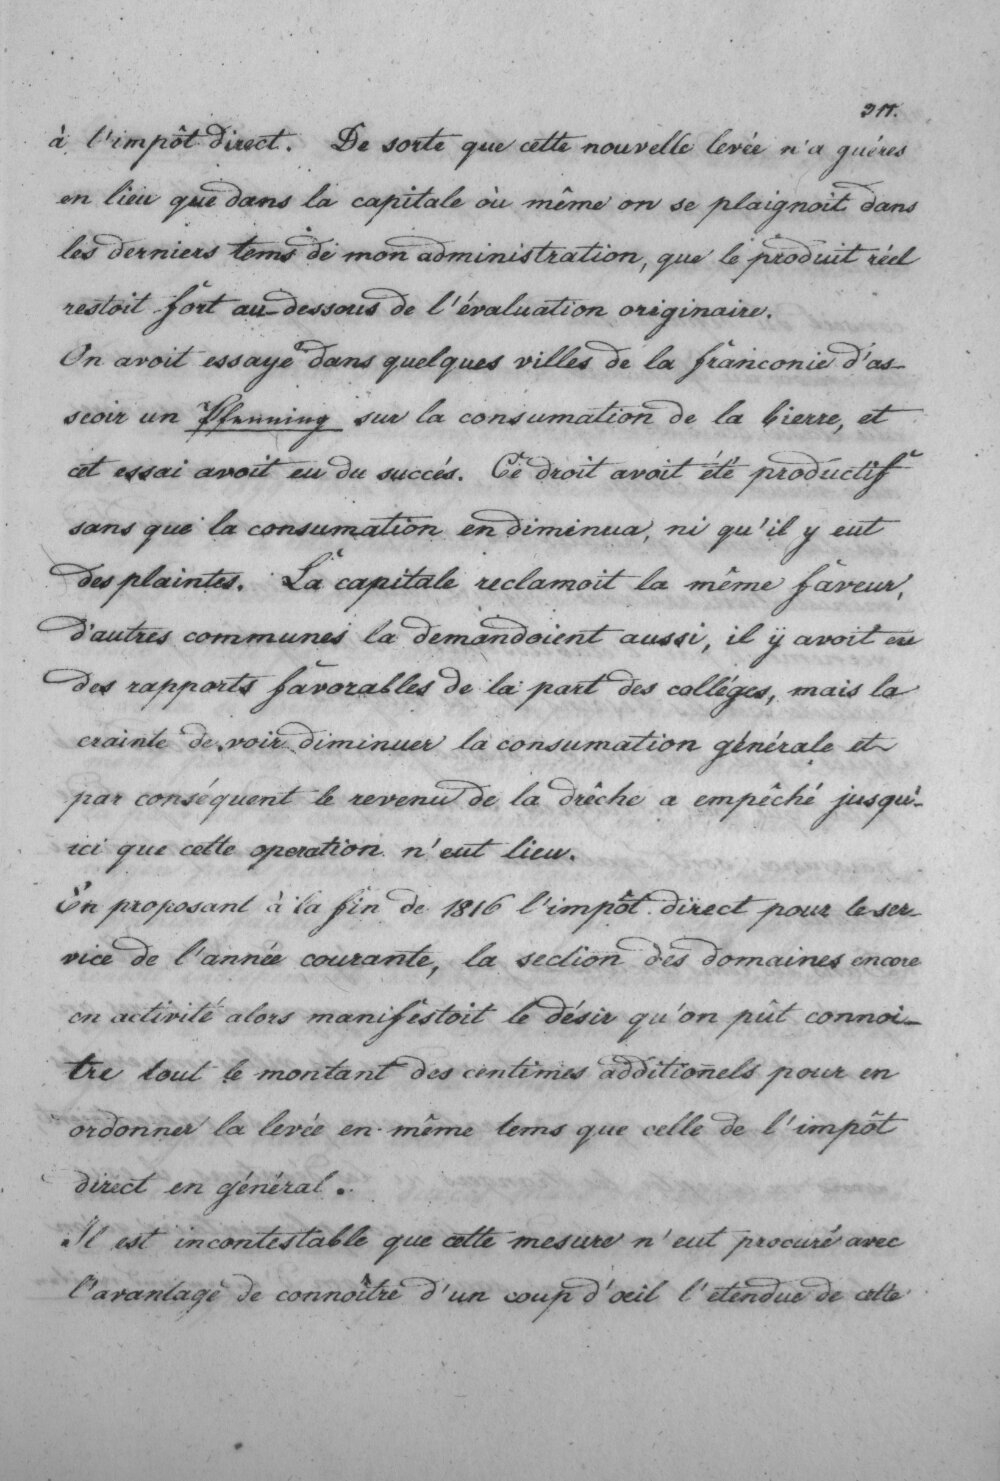 317.
à l'impôt direct. De sorte que cette nouvelle levée n'a guéres
en lieu que dans la capitale où même on se plaignoit dans
les derniers tems de mon administration, que le produit réel
restoit fort au-dessous de l'évaluation originaire.
On avoit essayé dans quelques villes de la franconie d'as-
seoir un Pfenning sur la consumation de la bierre, et
cet essai avoit eu du succés. Ce droit avoit été productif
sans que la consumation en diminua, ni qu'il y eut
des plaintes. La capitale reclamoit la même faveur,
d'autres communes la demandoient aussi, il ÿ avoit eu
des rapports favorables de la part des colléges, mais la
crainte de voir diminuer la consumation générale et
par conséquent le revenu de la drêche a empêché jusqu'-
ici que cette operation n'eut lieu.
En proposant à la fin de 1816 l'impôt direct pour le ser-
vice de l'année courante, la section des domaines encore
en activité alors manifestoit le désir qu'on pût connoi-
tre tout le montant des centimes additionels pour en
ordonner la levée en même tems que celle de l'impôt
direct en général.
Il est incontestable que cette mesure n'eut procuré avec
l'avantage de connoître d'un coup d'oeil l'etendue de cette